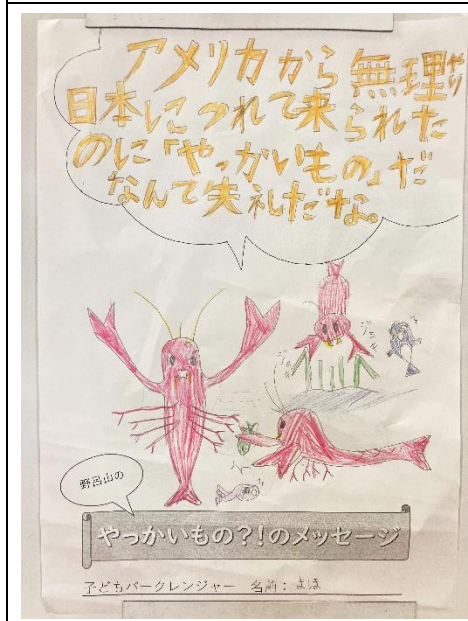 アメリカから無理やり
日本につれて来られた
のに「やっかいもの」だ
なんて失礼だな。
ジョキ
ジョキ
野呂山の
やっかいもの?!のメッセージ
子どもパークレンジャー 名前：まほ